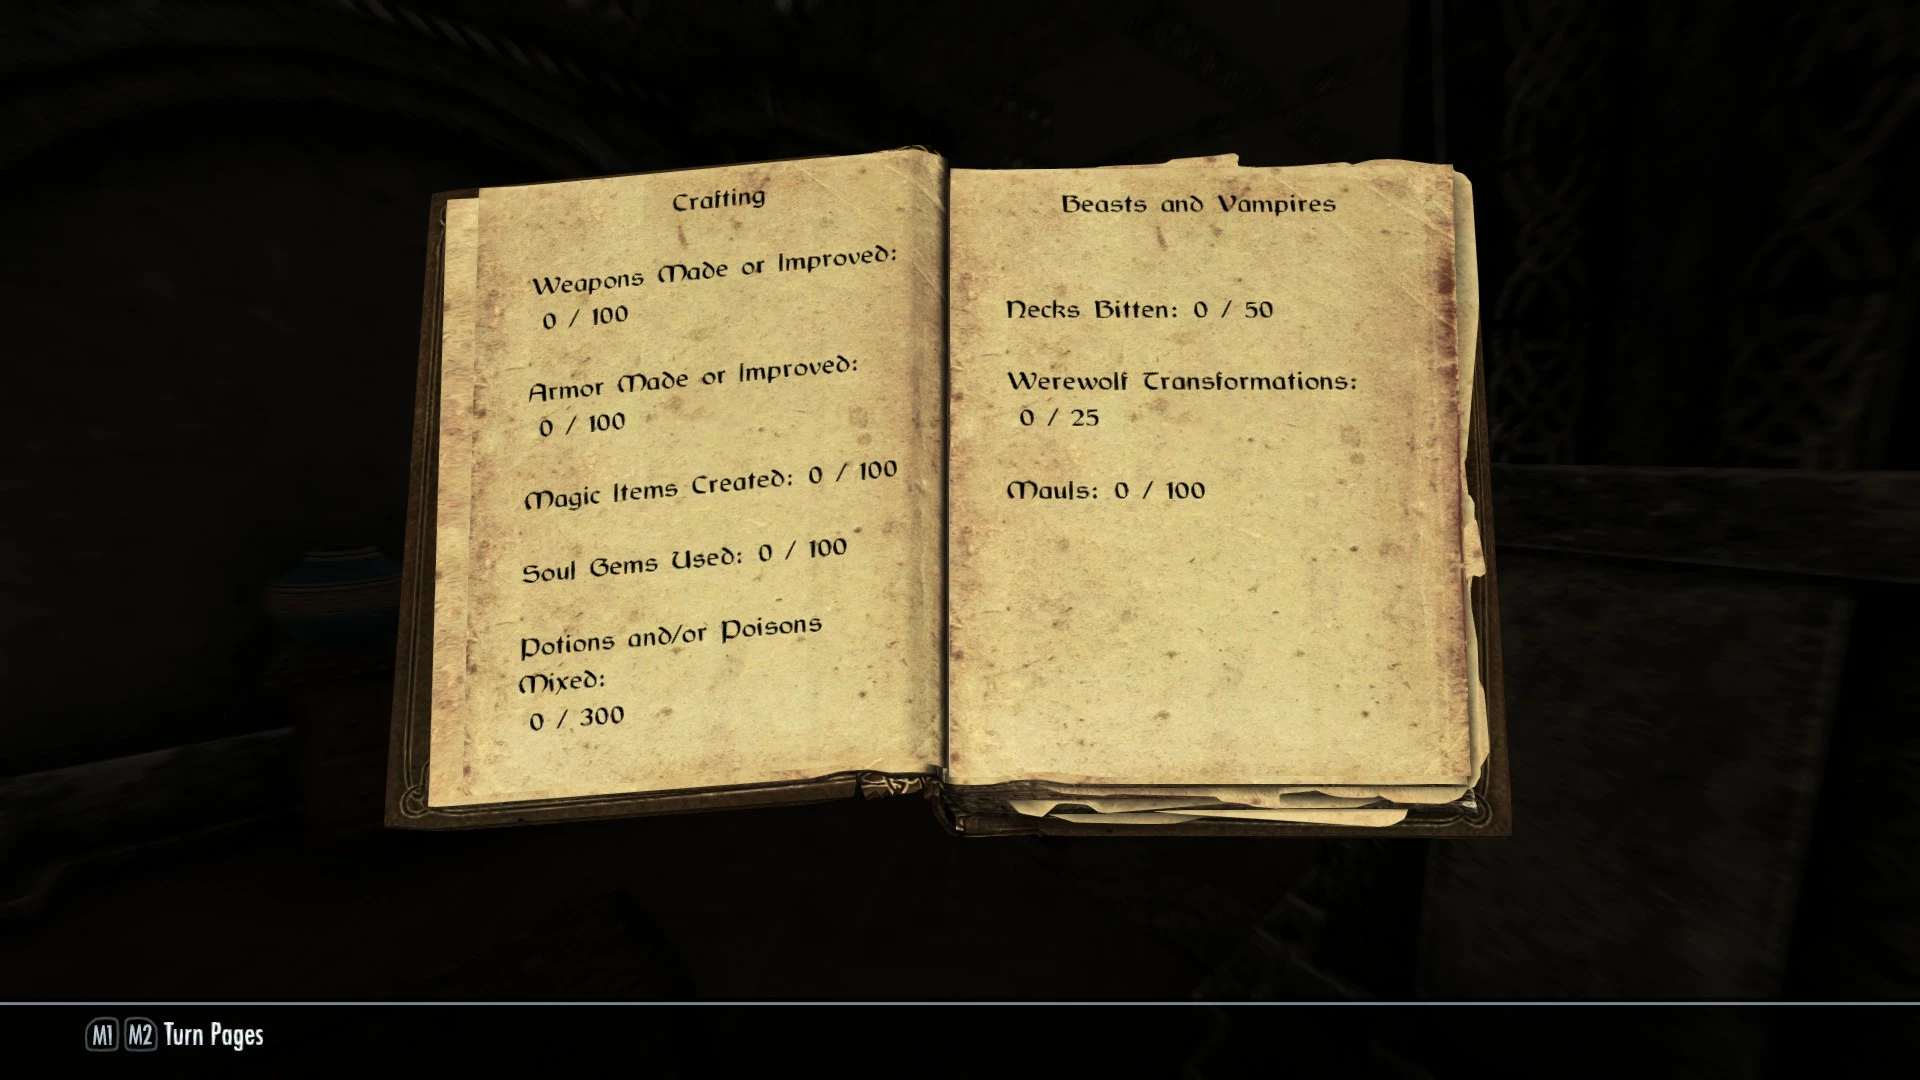 Crafting
Weapons Made or Improved:
0 / 100
Armor Made or Improved:
0 / 100
Magic Items Created: 0 / 100
Soul Gems Used: 0 / 100
Potions and/or Poisons
Mixed:
0 / 300
Beasts and Vampires
Necks Bitten: 0 / 50
Werewolf Transformations:
0 / 25
Mauls: 0 / 100
M1 M2 Turn Pages